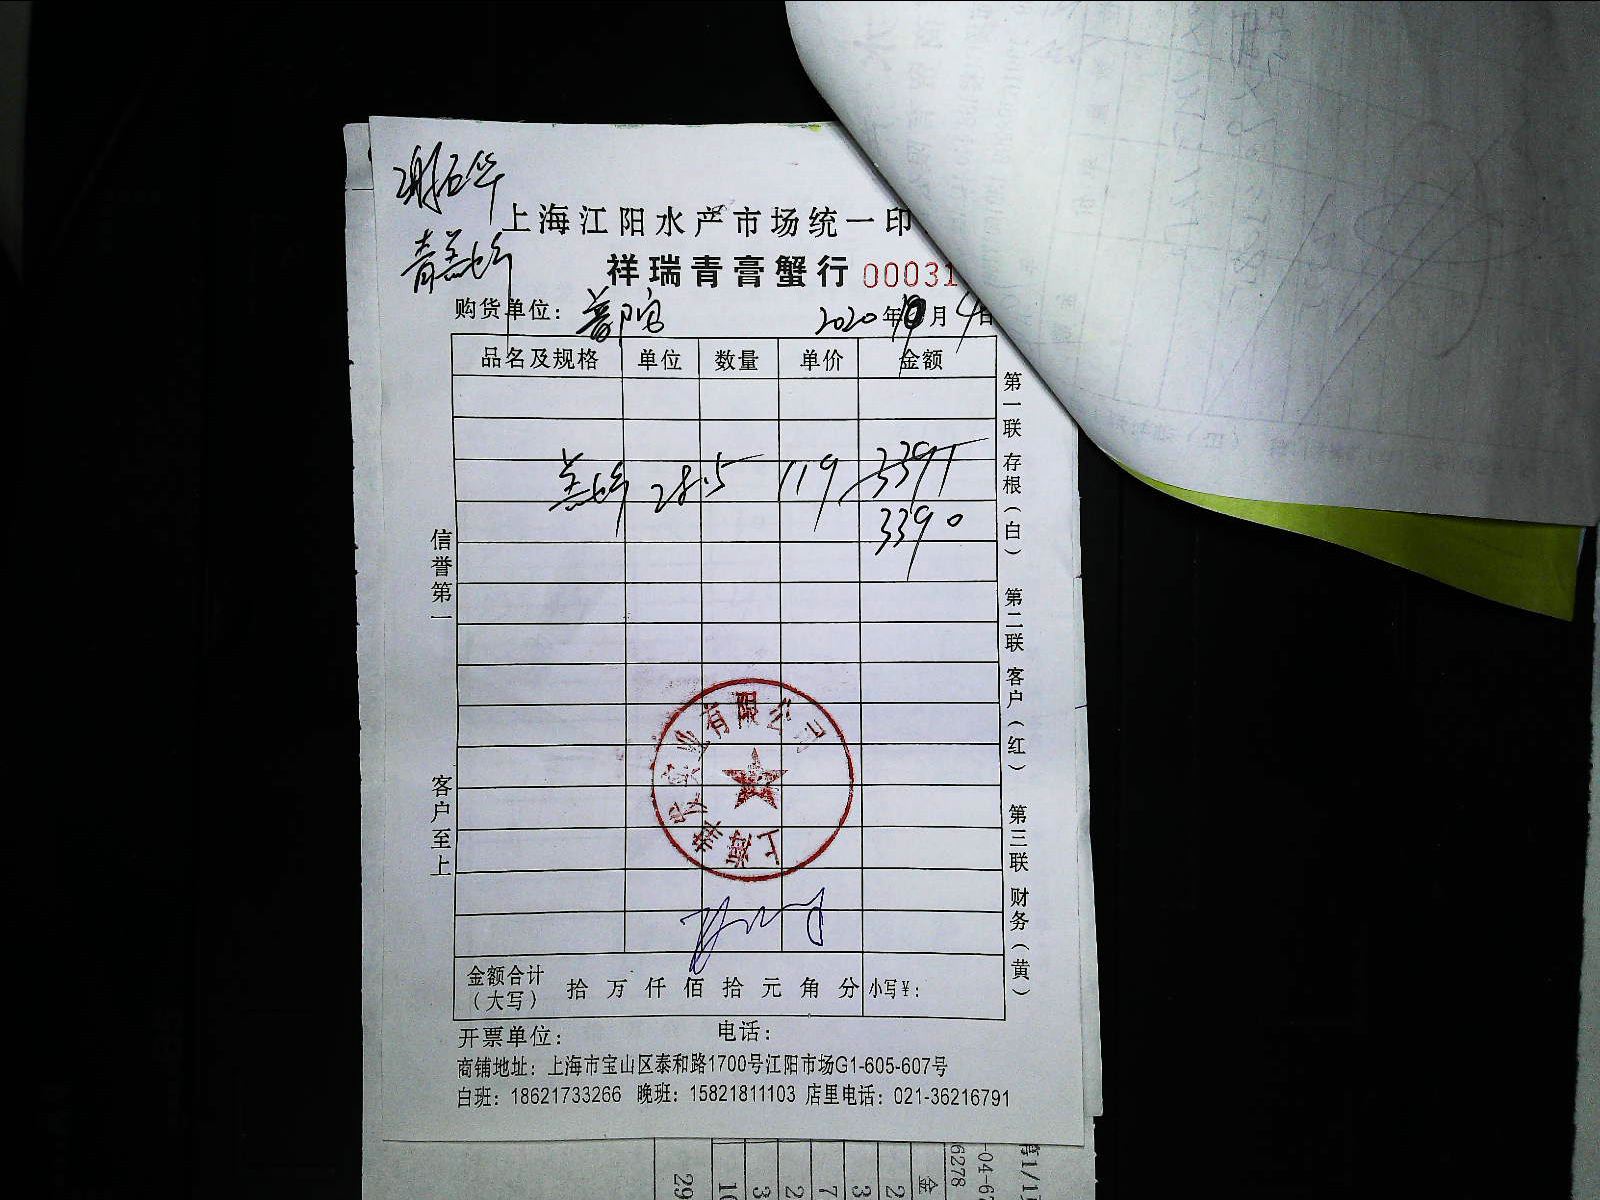 上海江阳水产市场统一印
祥瑞青膏蟹行 00031
购货单位: 普陀 2020年10月4日
品名及规格 单位 数量 单价 金额
28.5 119 3391
3390
信誉第一 客户至上
第一联 存根(白) 第二联 客户(红) 第三联 财务(黄)
上海 发实业有限公司
金额合计
(大写) 拾 万 仟 佰 拾 元 角 分 小写¥:
开票单位: 电话:
商铺地址: 上海市宝山区泰和路1700号江阳市场G1-605-607号
白班: 18621733266 晚班: 15821811103 店里电话: 021-36216791